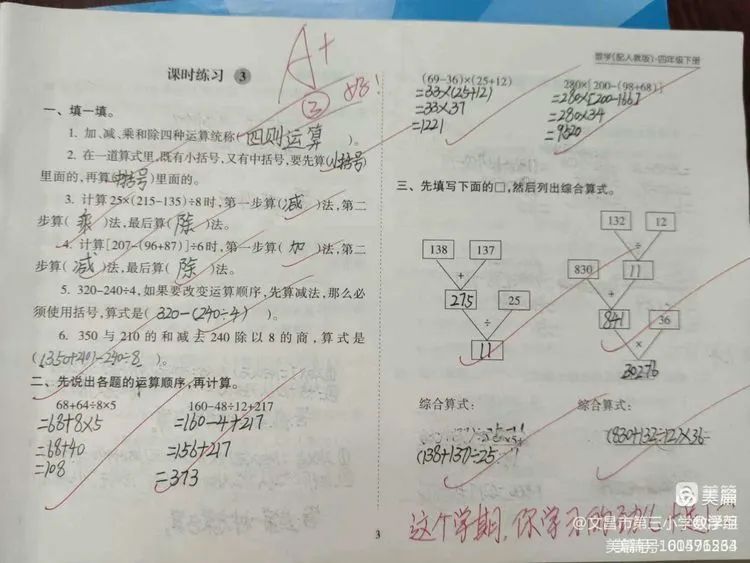 课时练习 3
A+
② 好！
一、填一填。
1. 加、减、乘和除四种运算统称(四则运算)。
2. 在一道算式里,既有小括号,又有中括号,要先算(小括号)
里面的,再算(中括号)里面的。
3. 计算25×(215-135)÷8时,第一步算(减)法,第二
步算(乘)法,最后算(除)法。
4. 计算[207-(96+87)]÷6时,第一步算(加)法,第二
步算(减)法,最后算(除)法。
5. 320-240÷4,如果要改变运算顺序,先算减法,那么必
须使用括号,算式是(320-(240÷4))。
6. 350与210的和减去240除以8的商,算式是
)。
二、先说出各题的运算顺序,再计算。
68+64÷8×5
=68+8×5
=68+40
=108
160-48÷12+217
=160-4+217
=156+217
=373
数学(配人教版)·四年级下册
(69-36)×(25+12)
=33×(25+12)
=33×37
=1221
280×[200-(98+68)]
=280×[200-166]
=280×34
=9520
三、先填写下面的□,然后列出综合算式。
138 137
+
275 25
÷
11
132 12
÷
830 11
+
841 36
×
30276
综合算式:
(138+137)÷25
综合算式:
(830+132÷12)×36=
这个学期,你学习的
3
美篇
@文昌市第三小学
美篇号